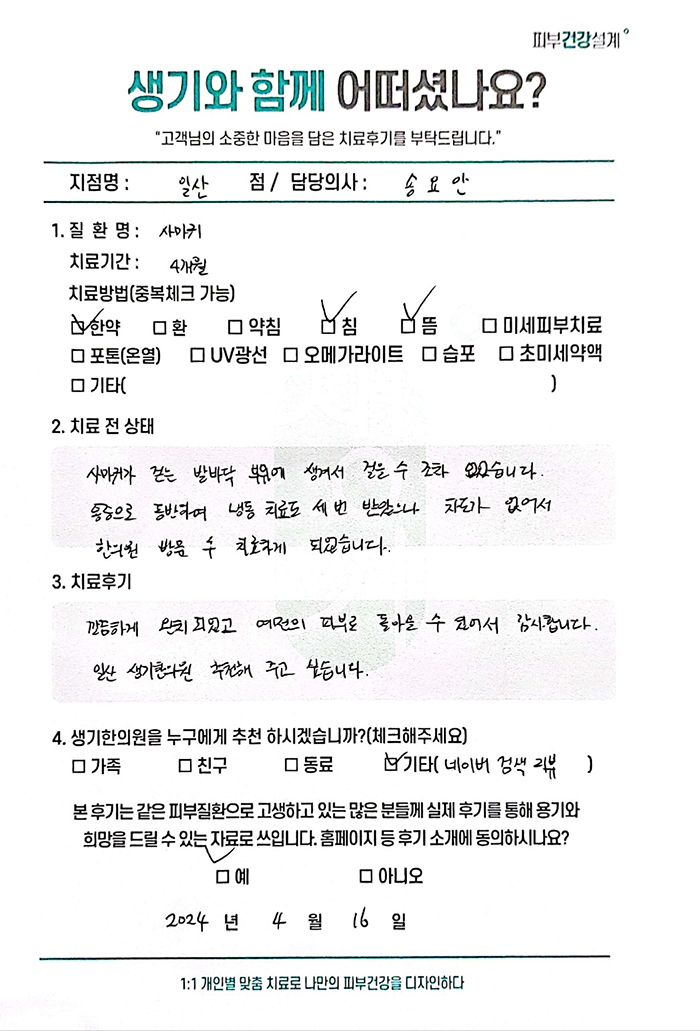 피부건강설계
생기와 함께 어떠셨나요?
"고객님의 소중한 마음을 담은 치료후기를 부탁드립니다."
지점명 : 일산 점 / 담당의사 : 송요안
1. 질 환 명 : 사마귀
치료기간 : 4개월
치료방법(중복체크 가능)
☑ 한약 □ 환 □ 약침 ☑ 침 ☑ 뜸 □ 미세피부치료
□ 포톤(온열) □ UV광선 □ 오메가라이트 □ 습포 □ 초미세약액
□ 기타( )
2. 치료 전 상태
사마귀가 걷는 발바닥 부위에 생겨서 걸을 수 조차 없었습니다.
통증으로 동반하여 냉동 치료도 세 번 받았으나 차도가 없어서
한의원 방문 후 치료하게 되었습니다.
3. 치료후기
깐끔하게 완치 되었고 예전의 피부로 돌아올 수 있어서 감사합니다.
일산 생기한의원 추천해 주고 싶습니다.
4. 생기한의원을 누구에게 추천 하시겠습니까?(체크해주세요)
□ 가족 □ 친구 □ 동료 ☑ 기타( 네이버 검색 리뷰 )
본 후기는 같은 피부질환으로 고생하고 있는 많은 분들께 실제 후기를 통해 용기와
희망을 드릴 수 있는 자료로 쓰입니다. 홈페이지 등 후기 소개에 동의하시나요?
☑ 예 □ 아니오
2024 년 4 월 16 일
1:1 개인별 맞춤 치료로 나만의 피부건강을 디자인하다